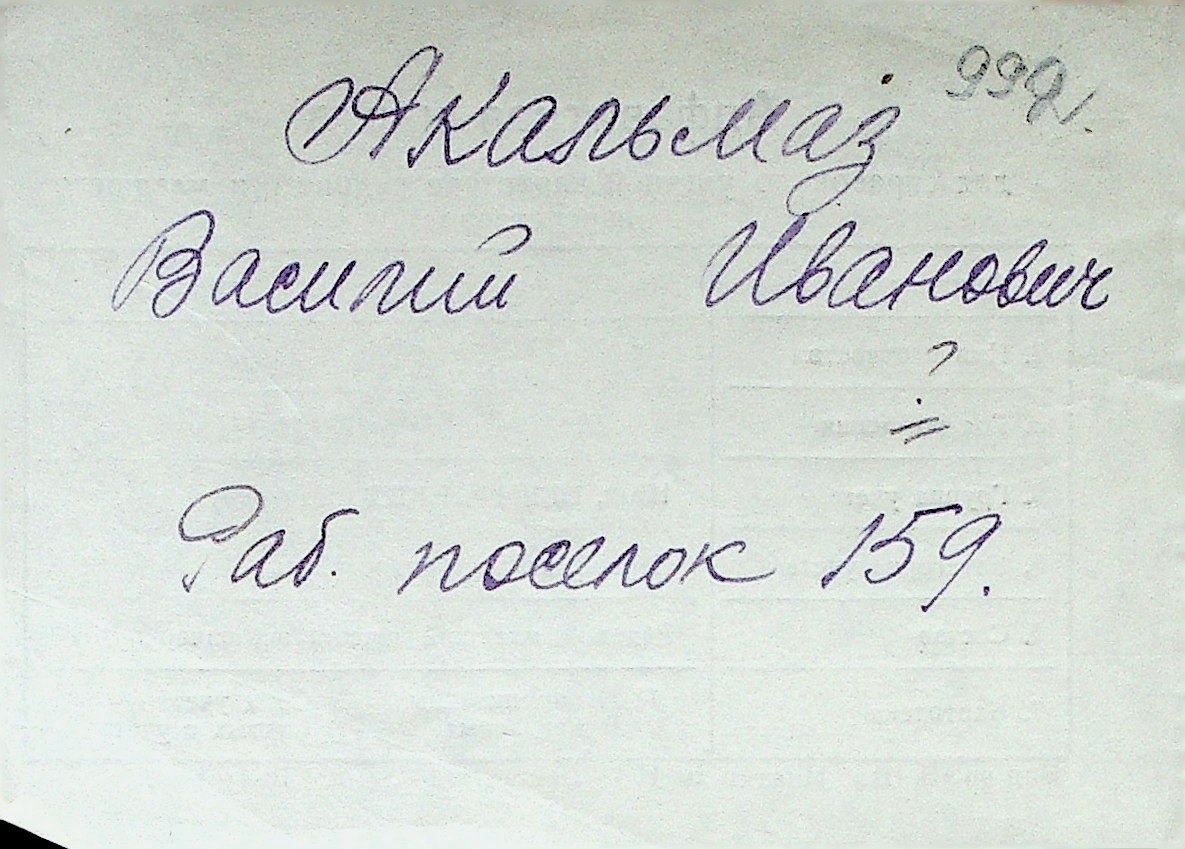 Акальмаз
Василий Иванович
?
=
Раб. поселок 159.